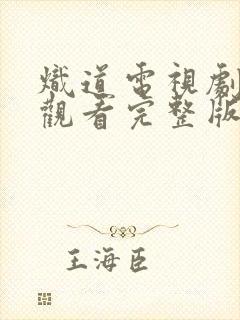 熾道電視劇
觀看完整版
王海臣